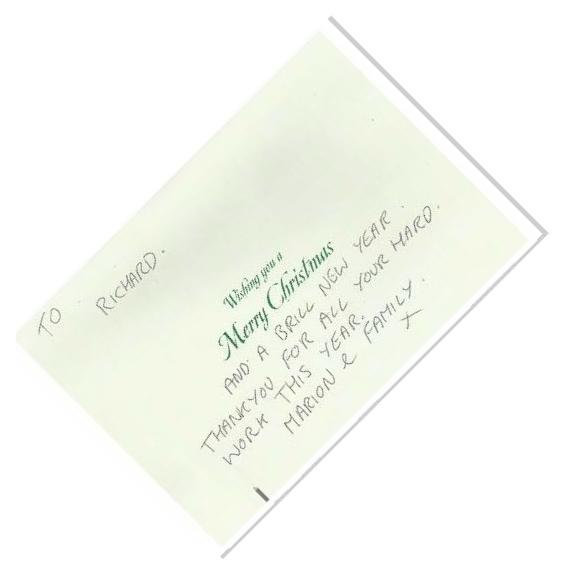 TO RICHARD.
Wishing you a
Merry Christmas
AND A BRILL NEW YEAR.
THANKYOU FOR ALL YOUR HARD.
WORK THIS YEAR.
MARION & FAMILY.
X